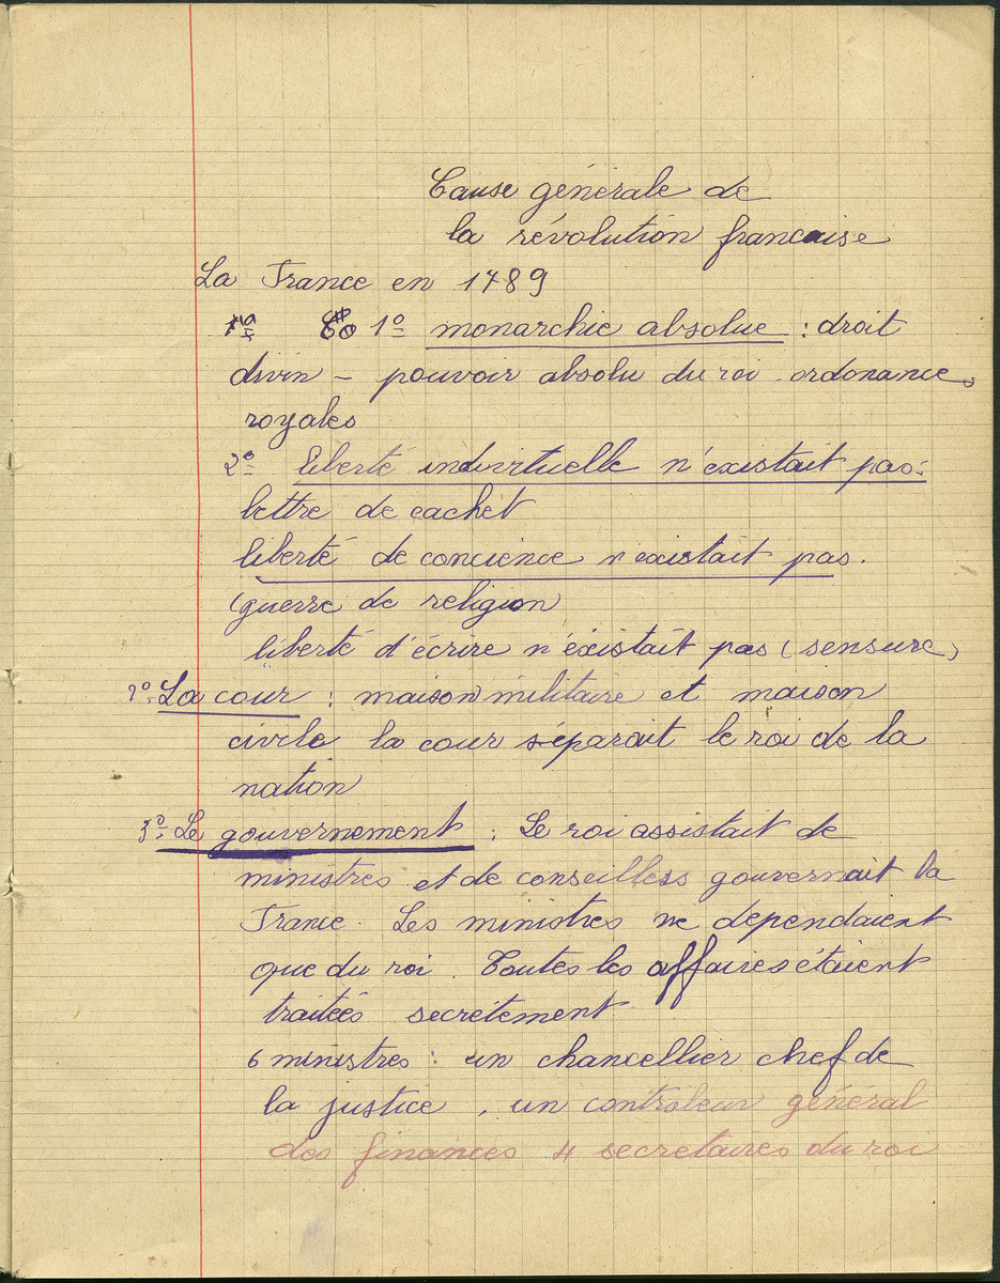 Cause générale de
la révolution francaise
La France en 1789
1º monarchie absolue : droit
divin - pouvoir absolu du roi. ordonances
royales
2º liberté indivituelle n'existait pas:
lettre de cachet
liberté de concience n'existait pas.
(guerre de religion)
liberté d'écrire n'éxistait pas (sensure)
2º- La cour : maison militaire et maison
civile la cour séparait le roi de la
nation
3º- Le gouvernement : Le roi assistait de
ministres et de conseilless gouvernait la
France. Les ministres ne dépendaient
que du roi. Toutes les affaires étaient
traitées secrètement
6 ministres : un chancellier chef de
la justice, un contrôleur général
des finances 4 secretaires du roi